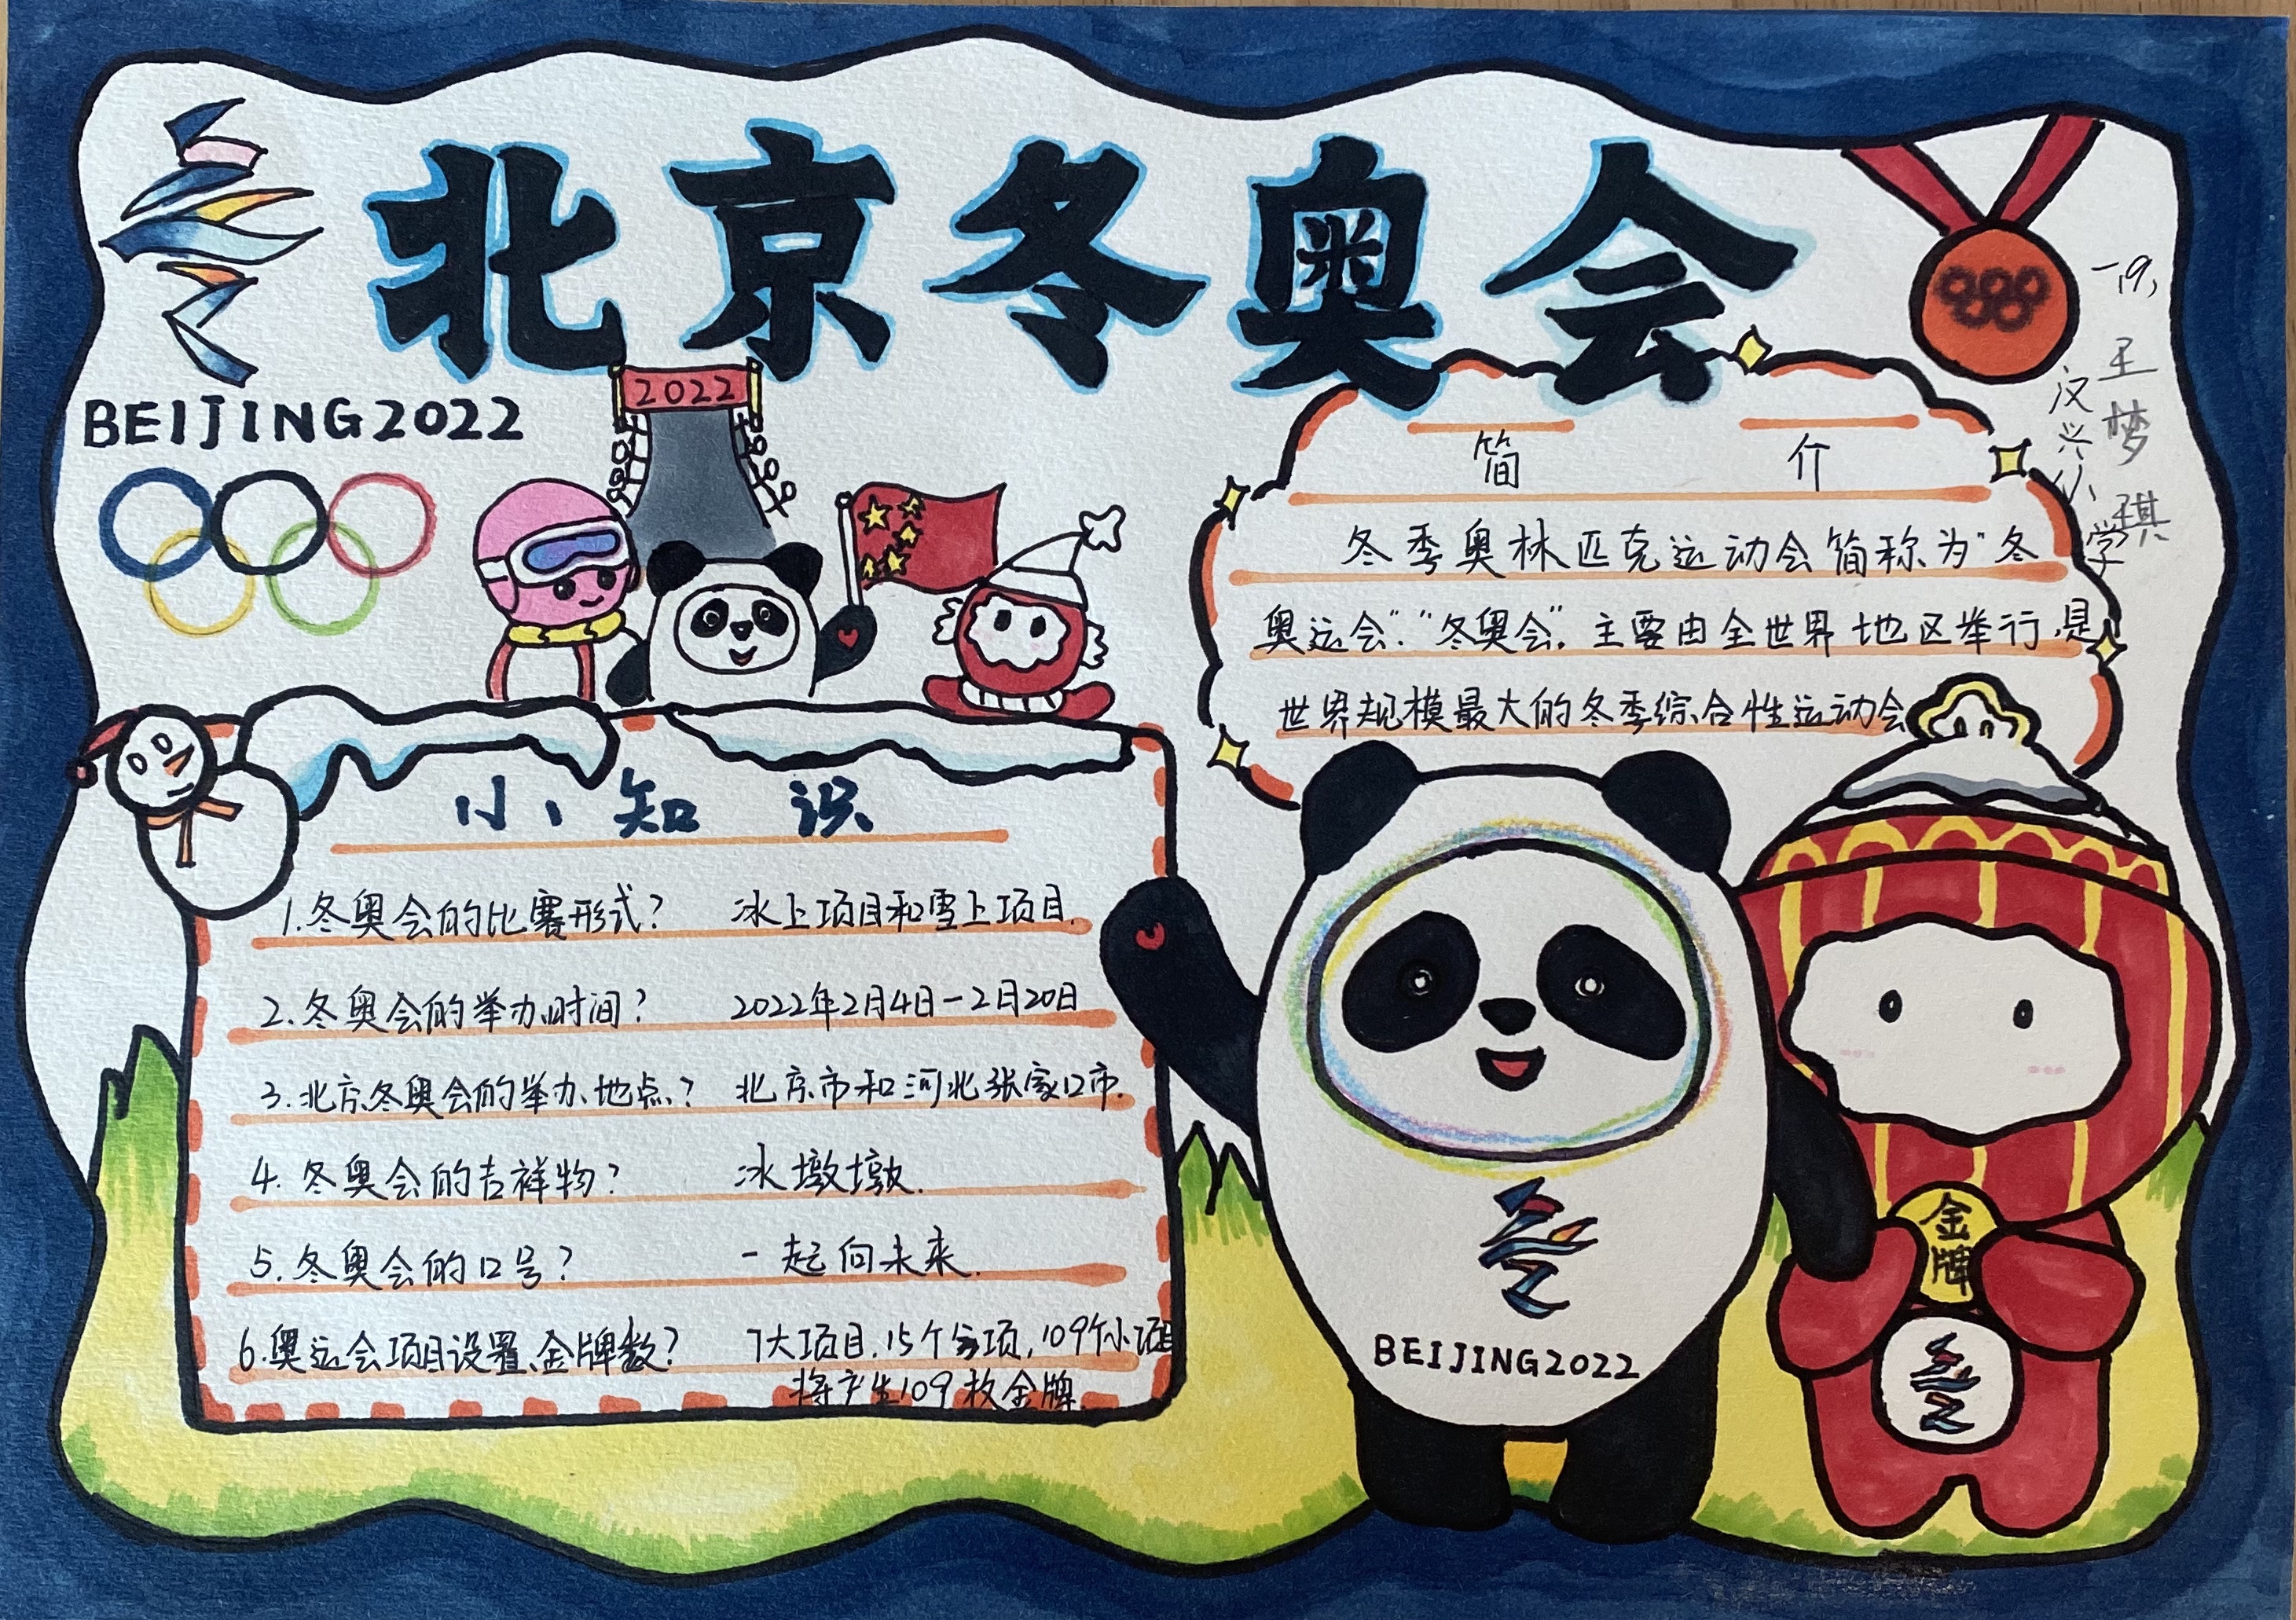 北京冬奥会
BEIJING2022
2022
一,9,
王梦琪
汉兴小学
简 介
冬季奥林匹克运动会简称为"冬
奥运会"."冬奥会".主要由全世界地区举行,是
世界规模最大的冬季综合性运动会
小知识
1.冬奥会的比赛形式? 冰上项目和雪上项目.
2.冬奥会的举办时间? 2022年2月4日-2月20日
3.北京冬奥会的举办地点? 北京市和河北张家口市.
4.冬奥会的吉祥物? 冰墩墩.
5.冬奥会的口号? 一起向未来.
6.奥运会项目设置、金牌数? 7大项目.15个分项,109个小项目
将产生109枚金牌.
金
牌
BEIJING2022